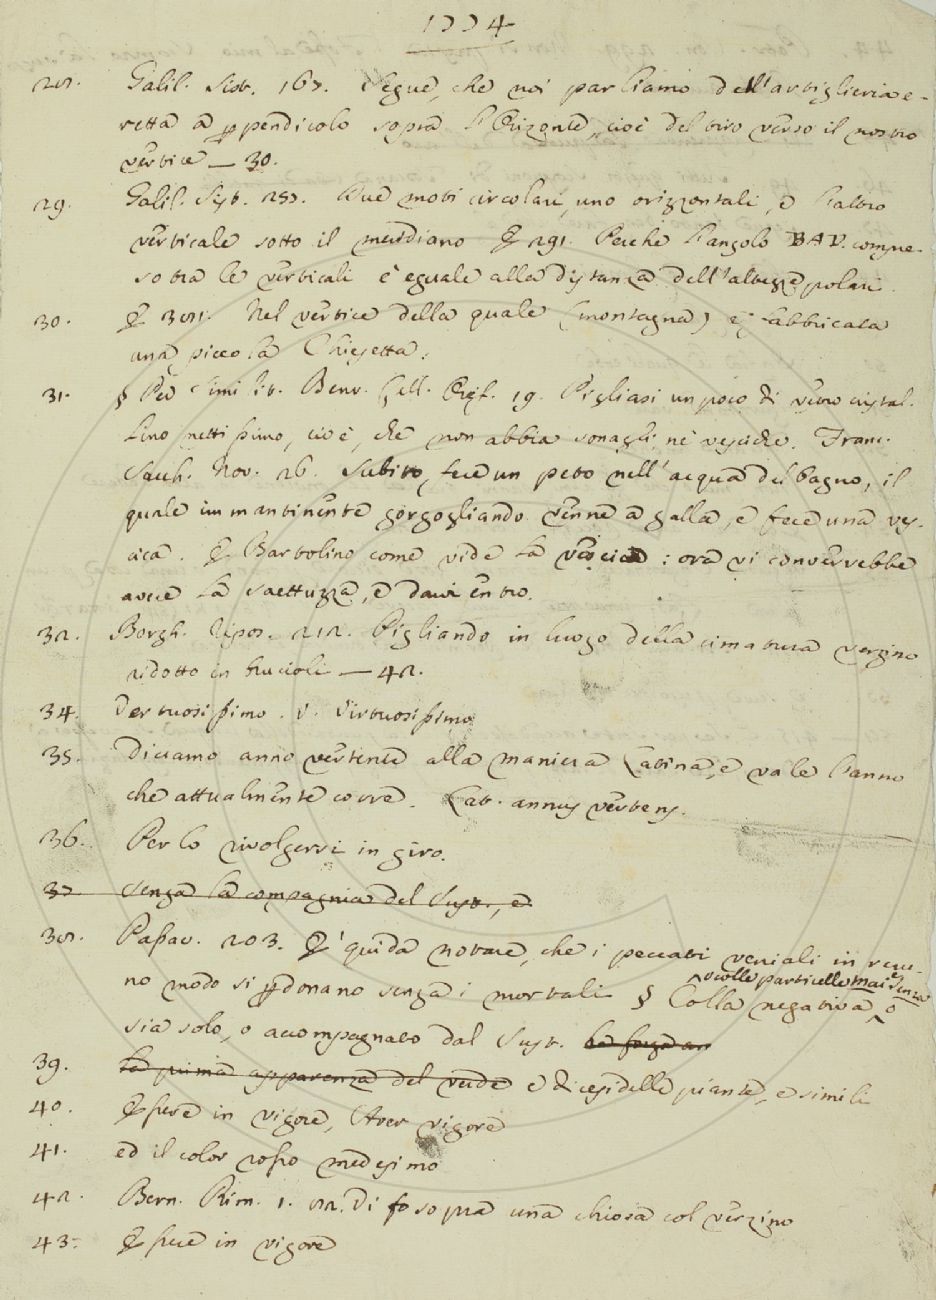 1334
28. Galil. Sist. 167. Segue, che noi parliamo dell'artiglieria e-
retta a perpendicolo sopra l'Orizonte, cioè del tiro verso il nostro
vertice — 30.
29. Galil. Sist. 257. Due moti circolari, uno orizzontale, e l'altro
verticale sotto il meridiano E 291. Perchè l'angolo BAD. compre-
so tra le verticali è eguale alla distanza dell'altezze polari.
30. E 381. Nel vertice della quale (montagna) è fabbricata
una piccola Chiesetta.
31. § Per simil it. Benv. Cell. Oref. 19. Piglisi un poco di vetro cristal-
lino nettissimo, cioè, che non abbia sonagli nè vesciche. Franc.
Sacch. Nov. 26. Subito, fece un peto nell'acqua del bagno, il
quale immantinente gorgogliando venne a galla, e fece una ves-
cica. E Bartolino come vide la vescica: ora vi converrebbe
avere la saettuzza, e darvi entro.
32. Borgh. Ripos. 212. Pigliando in luogo della cimatura verzino
ridotto in trucioli — 42.
34. Vertuosissimo. V. Virtuosissimo
35. Diciamo anno vertente alla maniera Latina, e vale l'anno
che attualmente corre. Lat. annus vertens.
36. Per lo rivolgersi in giro.
37 senza la compagnia del Sust., e
38. Passav. 203. E' quì da notare, che i peccati veniali in veru-
no modo si perdonano senza i mortali § Colla negativa, o
^ o colle particelle mai e senza
sia solo, o accompagnato dal Sust.
39. la prima apparenza del verde e dicesi delle piante, e simili
40. Essere in vigore, Aver vigore
41. ed il color rosso medesimo
42. Bern. Rim. 1. 82. Di fo sopra una chiosa col verzino
43. Essere in vigore